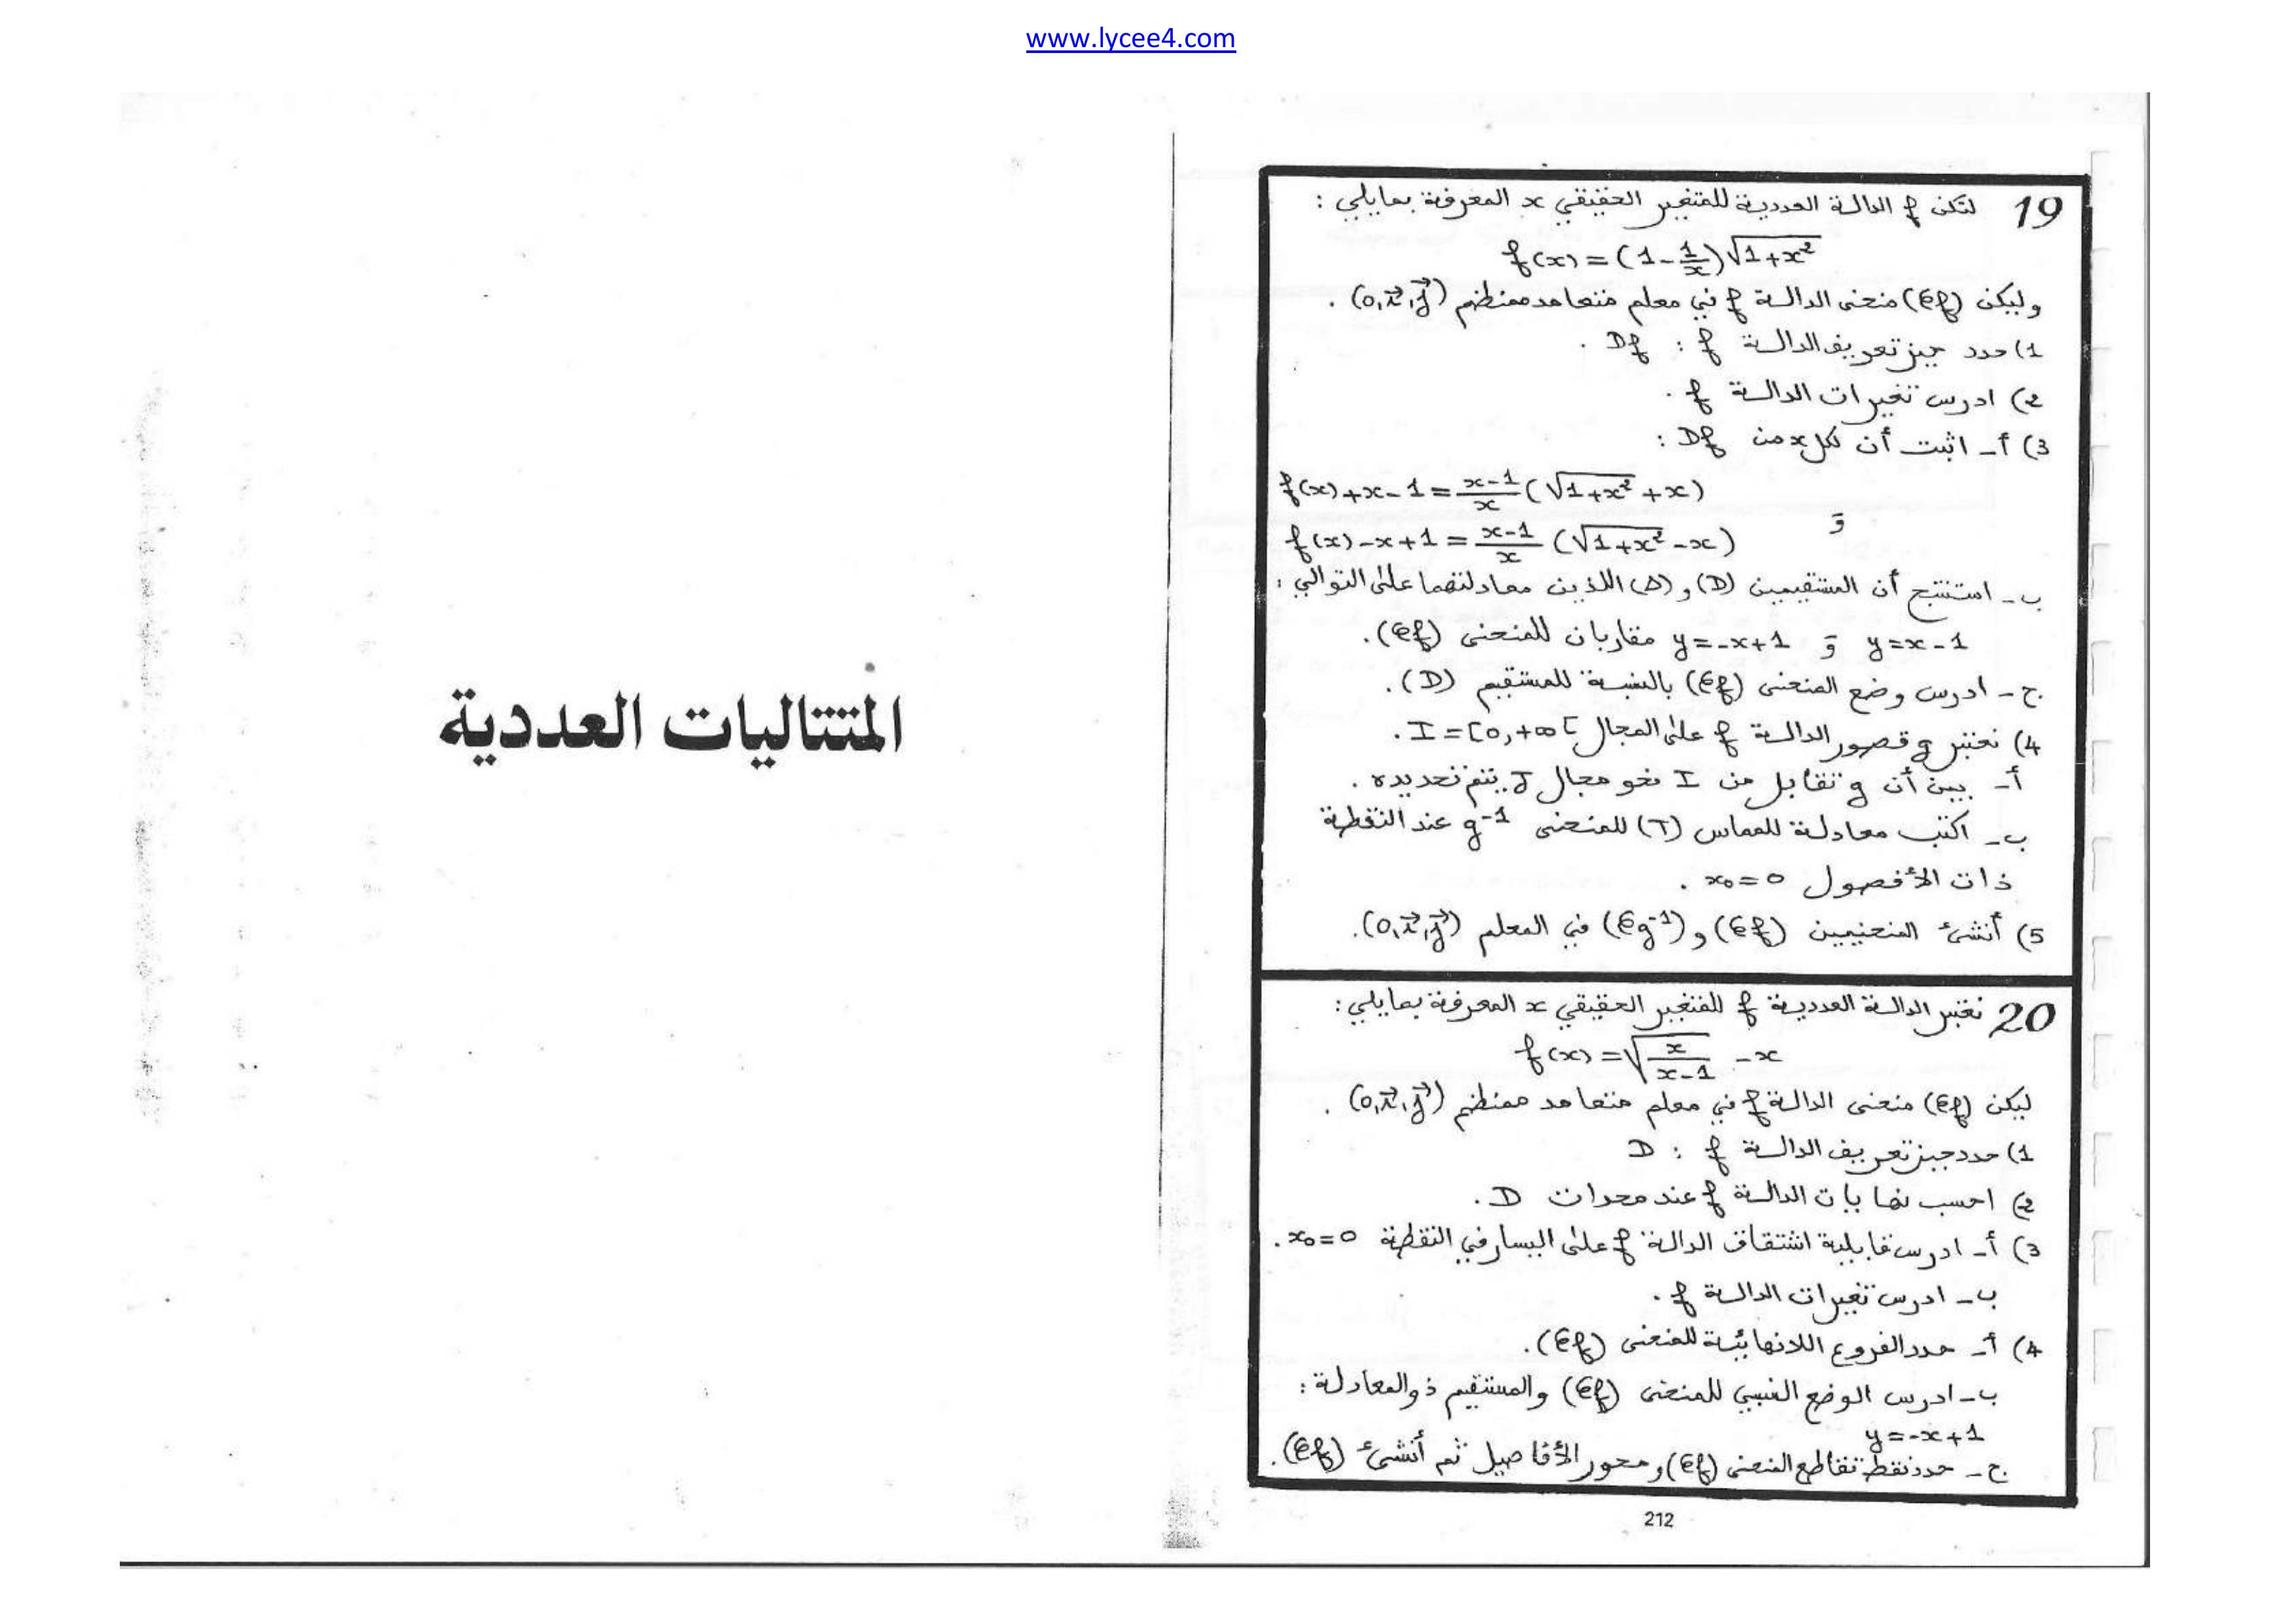 www.lycee4.com
19 لتكن f الدالة العددية للمتغير الحقيقي x المعرفة بمايلي :
f(x) = (1 - 1/x)√(1+x²)
وليكن (Cf) منحنى الدالة f في معلم متعامد ممنظم (o, i⃗, j⃗) .
1) حدد حيز تعريف الدالة f : Df .
2) ادرس تغيرات الدالة f .
3) أ - اثبت أن لكل x من Df :
f(x) + x - 1 = (x-1)/x (√(1+x²) + x)
و
f(x) - x + 1 = (x-1)/x (√(1+x²) - x)
ب - استنتج أن المستقيمين (D) و (Δ) اللذين معادلتهما على التوالي :
y = x - 1 و y = -x + 1 مقاربان للمنحنى (Cf).
ج - ادرس وضع المنحنى (Cf) بالنسبة للمستقيم (D).
4) نعتبر g قصور الدالة f على المجال I = [0, +∞[ .
أ - بين أن g تقابل من I نحو مجال J يتم تحديده .
ب - اكتب معادلة للمماس (T) للمنحنى g⁻¹ عند النقطة
ذات الأفصول x₀ = 0 .
5) أنشئ المنحنيين (Cf) و (Cg⁻¹) في المعلم (o, i⃗, j⃗).
20 نعتبر الدالة العددية f للمتغير الحقيقي x المعرفة بمايلي :
f(x) = √(x/(x-1)) - x
ليكن (Cf) منحنى الدالة f في معلم متعامد ممنظم (o, i⃗, j⃗) .
1) حدد حيز تعريف الدالة f : D
2) احسب نهايات الدالة f عند محدات D .
3) أ - ادرس قابلية اشتقاق الدالة f على اليسار في النقطة x₀ = 0 .
ب - ادرس تغيرات الدالة f .
4) أ - حدد الفروع اللانهائية للمنحنى (Cf).
ب - ادرس الوضع النسبي للمنحنى (Cf) والمستقيم ذو المعادلة :
y = -x + 1
ج - حدد نقط تقاطع المنحنى (Cf) ومحور الأفاصيل ثم أنشئ (Cf).
212
المتتاليات العددية